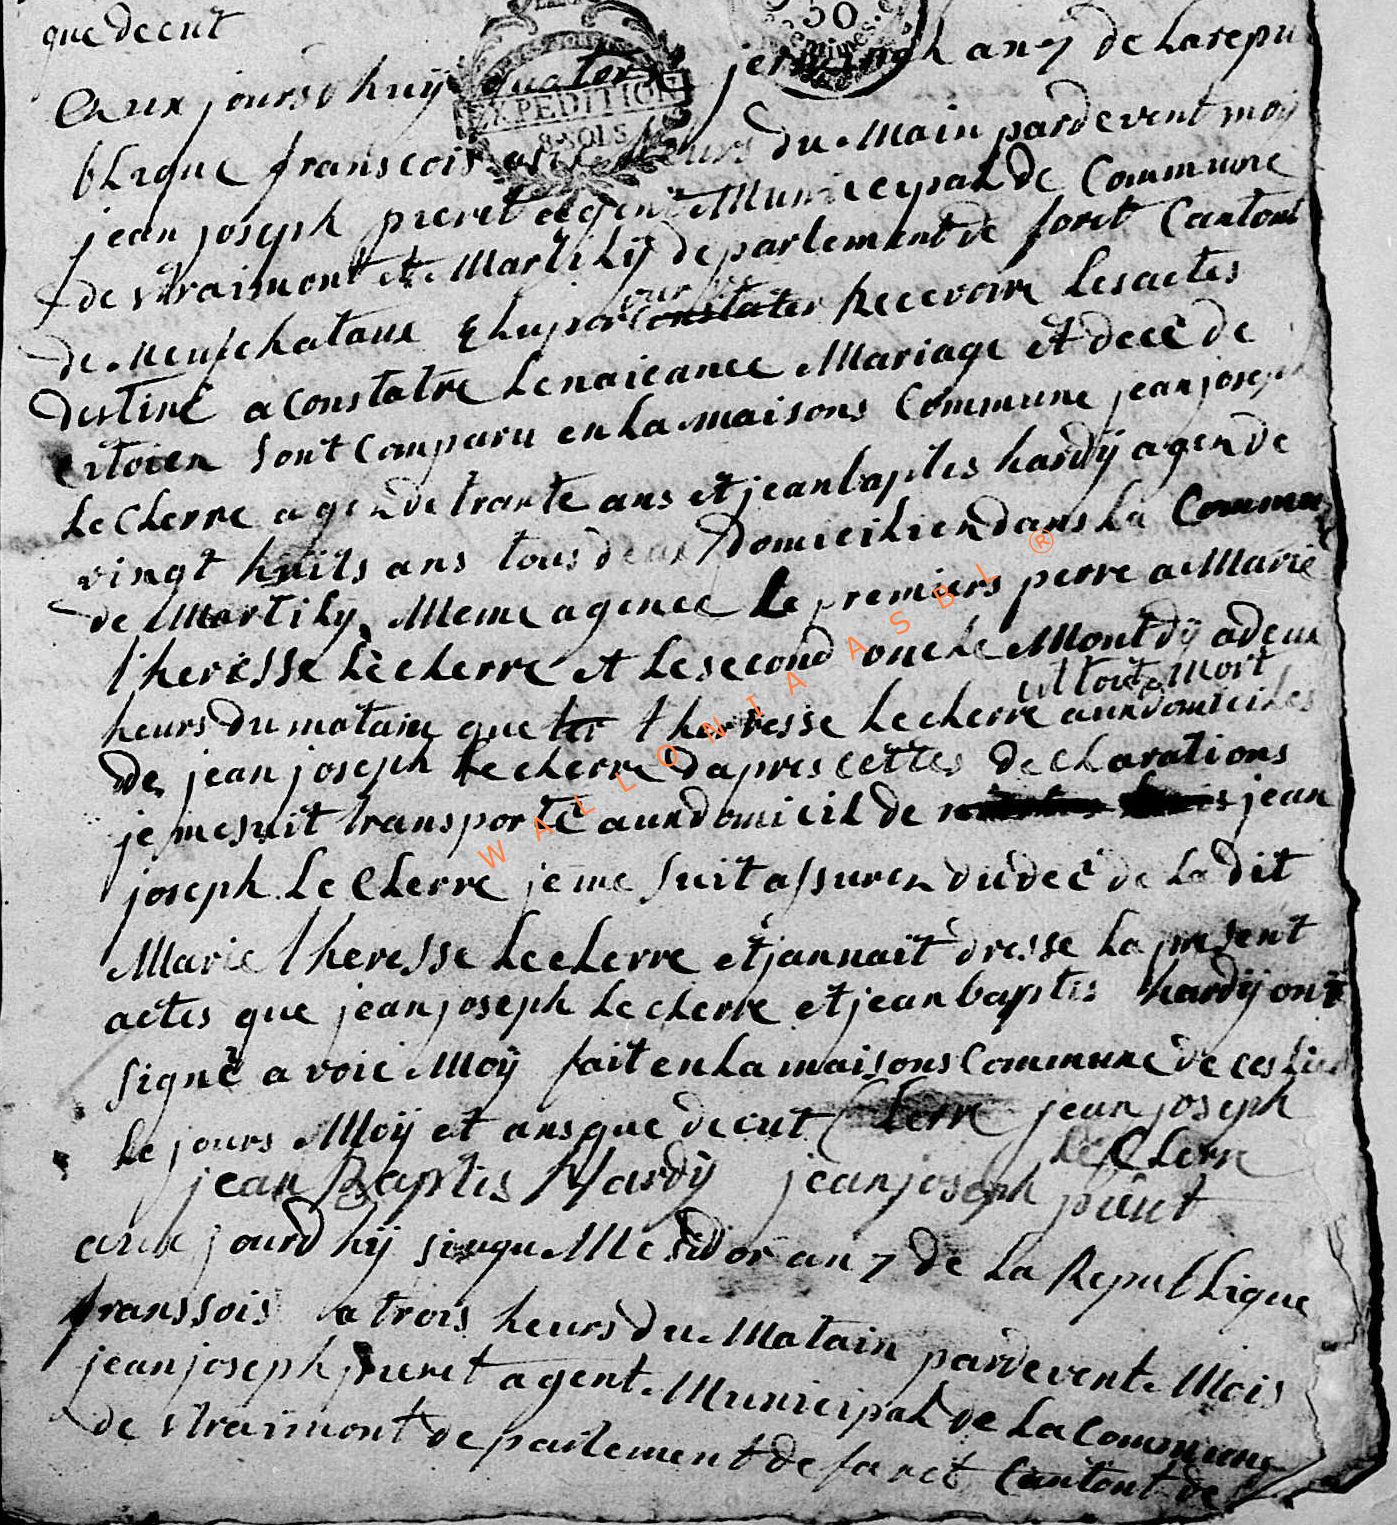 que decut
Aux jours d huÿ quatorse jerminah an 7 de La repu
blique franscois heurs du Main pardevent moÿ
jean joseph pieret agent Municipal de Commune
de straimont et Martilÿ departement de foret Cantont
de neufchataux Elu pour constater Recevoire Les actes
destiné a Constatre Le naicance Mariage et decè de
citoien sont Comparu en La maisons Commune jean joseph
Le Clerre agen de trante ans et jean baptis hardÿ agen de
vingt huits ans tous deux domicilien dans La Commun
de Martilÿ Meme agence Le premiers perre a Marie
theresse Leclerre et Le second oncle Mont dÿ a deux
heurs du mataine que ter theresse Leclerre ettoit Mort aux domiciles
de jean joseph Leclerre dapres cettes declarations
je me suit transporté aux domicil de jean
joseph Le Clerre je me suit assuren du decè de La dit
Marie theresse Leclerre et jannait dresse La present
actes que jean joseph Leclerre et jean baptis hardÿ ont
signé a voic Moÿ fait en La maisons Commune de ces Lieu
Le jours Moÿ et ans que decut Clerre jean joseph
Le Clerre
jean Baptis Hardÿ jean joseph pieret
aux jourd hÿ sinqu Mesidor an 7 de La Republique
franssois a trois heurs du Matain pardevent Mois
jean joseph pieret agent Municipal de La Commune
de straimont departement de faret Cantont de
EXPEDITION
8 SOLS
50
centimes
WALLONIA ASBL ®